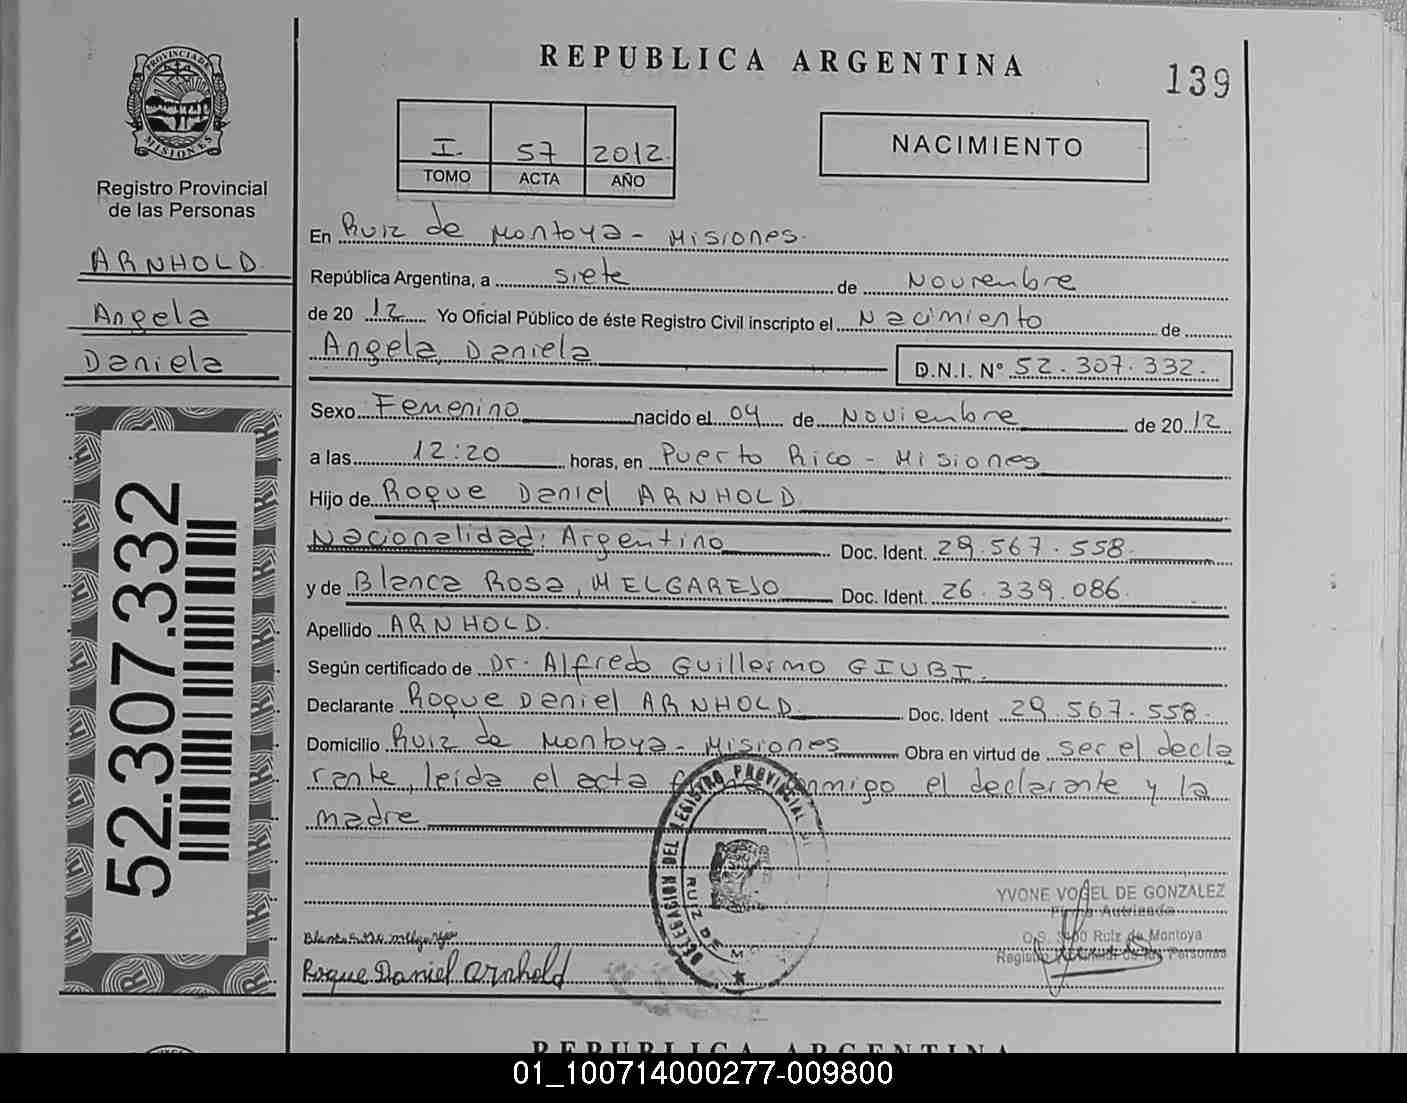 REPUBLICA ARGENTINA
139
PROVINCIA DE MISIONES
Registro Provincial
de las Personas
I. 57 2012.
TOMO ACTA AÑO
NACIMIENTO
ARNHOLD
Angela
Daniela
52.307.332
En Ruiz de Montoya - Misiones.
República Argentina, a siete de Noviembre
de 20 12 Yo Oficial Público de éste Registro Civil inscripto el Nacimiento de
Angela, Daniela D.N.I. N° 52.307.332.
Sexo Femenino nacido el 04 de Noviembre de 20 12
a las 12:20 horas, en Puerto Rico - Misiones
Hijo de Roque Daniel ARNHOLD
Nacionalidad: Argentino Doc. Ident. 29.567.558.
y de Blanca Rosa, MELGAREJO Doc. Ident. 26.339.086.
Apellido ARNHOLD.
Según certificado de Dr. Alfredo Guillermo GIUBI.
Declarante Roque Daniel ARNHOLD Doc. Ident 29.567.558.
Domicilio Ruiz de Montoya - Misiones Obra en virtud de ser el decla
rante, leida el acta conmigo el declarante y la
madre
DELEGACION DEL REGISTRO PROVINCIAL
RUIZ DE
YVONE VOGEL DE GONZALEZ
Firma Autrizada
Ruiz de Montoya
Registro de las Personas
Roque Daniel Arnhold
REPUBLICA ARGENTINA
01_100714000277-009800